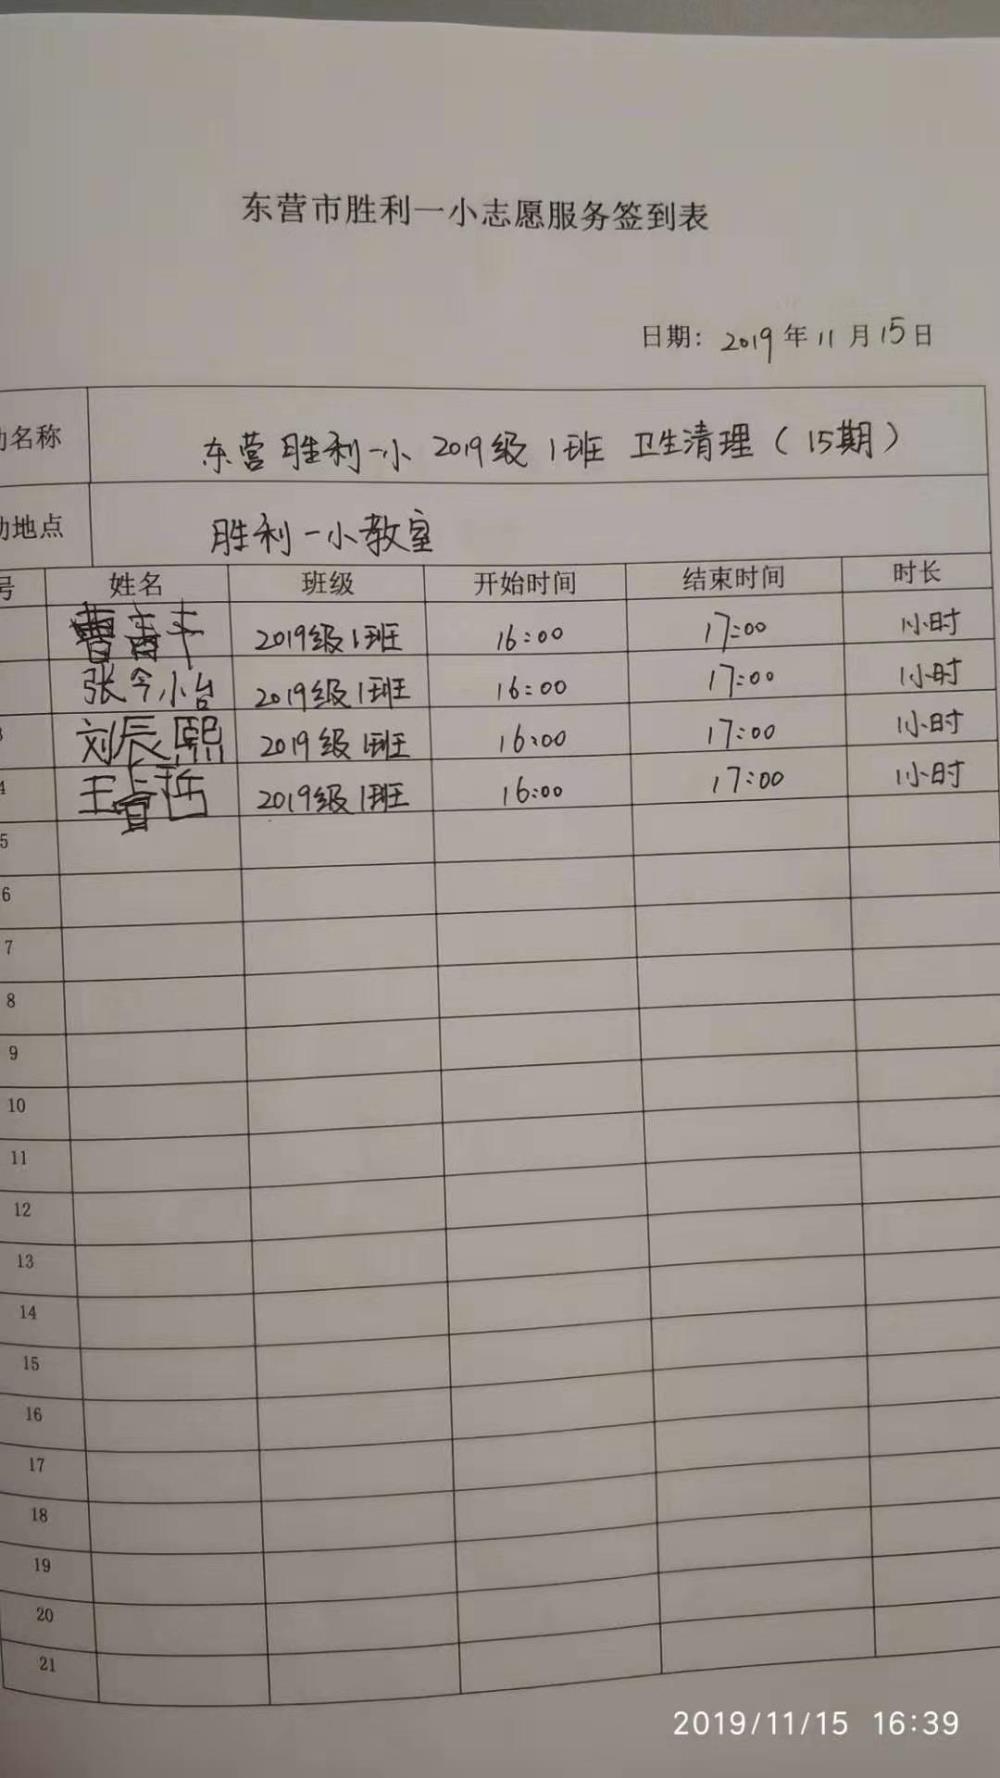 东营市胜利一小志愿服务签到表
日期: 2019年11月15日
动名称 东营胜利一小 2019级 1班 卫生清理（15期）
动地点 胜利一小教室
号 姓名 班级 开始时间 结束时间 时长
曹 2019级1班 16:00 17:00 1小时
张今小台 2019级1班 16:00 17:00 1小时
3 刘辰熙 2019级1班 16:00 17:00 1小时
4 王 2019级1班 16:00 17:00 1小时
5
6
7
8
9
10
11
12
13
14
15
16
17
18
19
20
21
2019/11/15 16:39